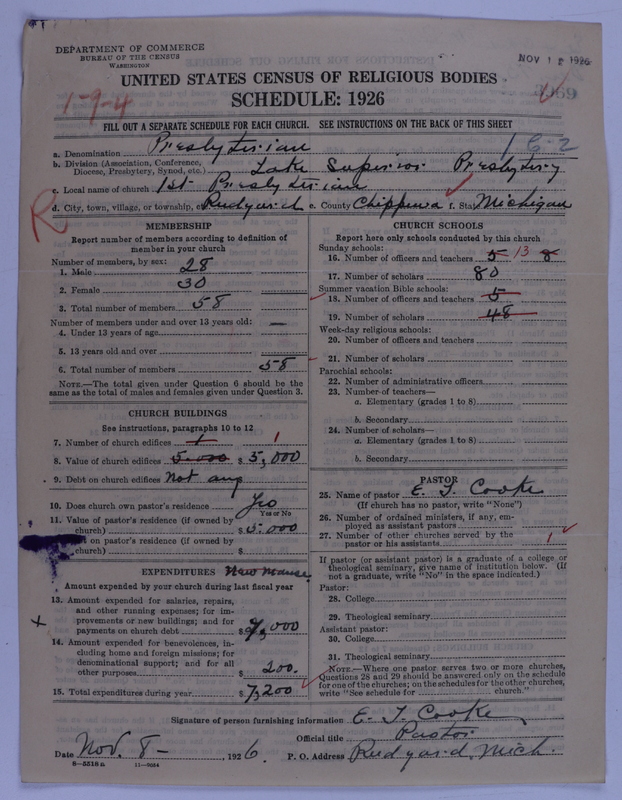 DEPARTMENT OF COMMERCE
BUREAU OF THE CENSUS
WASHINGTON
NOV 12 1926
UNITED STATES CENSUS OF RELIGIOUS BODIES
SCHEDULE: 1926
1-9-4
FILL OUT A SEPARATE SCHEDULE FOR EACH CHURCH. SEE INSTRUCTIONS ON THE BACK OF THIS SHEET
a. Denomination Presbyterian 1 6-2
b. Division (Association, Conference, Diocese, Presbytery, Synod, etc.) Lake Superior Presbytery
c. Local name of church 1st Presbyterian
R
d. City, town, village, or township, etc. Rudyard e. County Chippewa f. State Michigan
MEMBERSHIP
Report number of members according to definition of
member in your church
Number of members, by sex:
1. Male 28
2. Female 30
3. Total number of members 58
Number of members under and over 13 years old: —
4. Under 13 years of age
5. 13 years old and over
6. Total number of members 58
NOTE.—The total given under Question 6 should be the
same as the total of males and females given under Question 3.
CHURCH BUILDINGS
See instructions, paragraphs 10 to 12
7. Number of church edifices 1 1
8. Value of church edifices 5.000 $ 5,000
9. Debt on church edifices Not any
10. Does church own pastor's residence Yes
Yes or No
11. Value of pastor's residence (if owned by
church) $ 5.000
on pastor's residence (if owned by
church) $
EXPENDITURES New Manse
Amount expended by your church during last fiscal year
13. Amount expended for salaries, repairs,
and other running expenses; for im-
provements or new buildings; and for
payments on church debt $ 7,000
x
14. Amount expended for benevolences, in-
cluding home and foreign missions; for
denominational support; and for all
other purposes $ 200.
15. Total expenditures during year $ 7,200
CHURCH SCHOOLS
Report here only schools conducted by this church
Sunday schools:
16. Number of officers and teachers 5 13 8
17. Number of scholars 80
Summer vacation Bible schools:
18. Number of officers and teachers 5
19. Number of scholars 48
Week-day religious schools:
20. Number of officers and teachers
21. Number of scholars
Parochial schools:
22. Number of administrative officers
23. Number of teachers—
a. Elementary (grades 1 to 8)
b. Secondary
24. Number of scholars—
a. Elementary (grades 1 to 8)
b. Secondary
PASTOR
25. Name of pastor E. J. Cooke
(If church has no pastor, write "None")
26. Number of ordained ministers, if any, em-
ployed as assistant pastors
27. Number of other churches served by the
pastor or his assistants 1
If pastor (or assistant pastor) is a graduate of a college or
theological seminary, give name of institution below. (If
not a graduate, write "No" in the space indicated.)
Pastor:
28. College
29. Theological seminary
Assistant pastor:
30. College
31. Theological seminary
NOTE.—Where one pastor serves two or more churches,
Questions 28 and 29 should be answered only on the schedule
for one of the churches; on the schedules for the other churches,
write "See schedule for church."
Signature of person furnishing information E. J. Cooke
Official title Pastor
Date Nov. 8 -, 1926. P. O. Address Rudyard, Mich.
8-5518a 11-9054